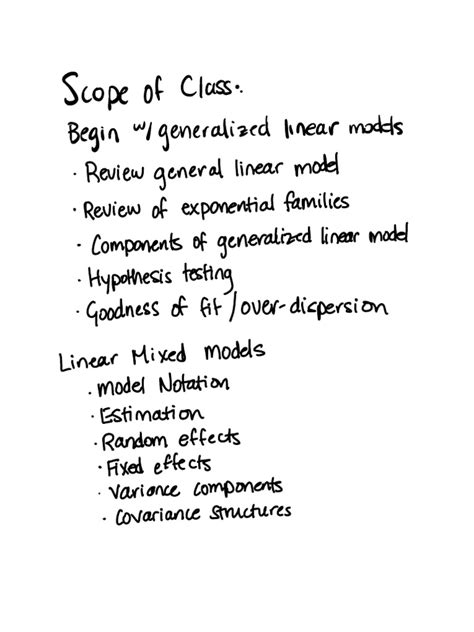 Scope of Class:
Begin w/ generalized linear models
· Review general linear model
· Review of exponential families
· Components of generalized linear model
· Hypothesis testing
· Goodness of fit / over-dispersion
Linear Mixed Models
· Model Notation
· Estimation
· Random effects
· Fixed effects
· Variance components
· Covariance structures